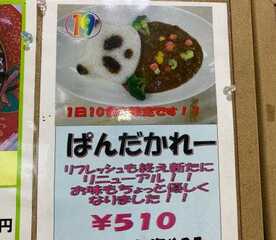 19
1日10食限定です！！
ぱんだかれー
リフレッシュも終え新たに
リニューアル！！
お味もちょっと優しく
なりました！！
￥510
円